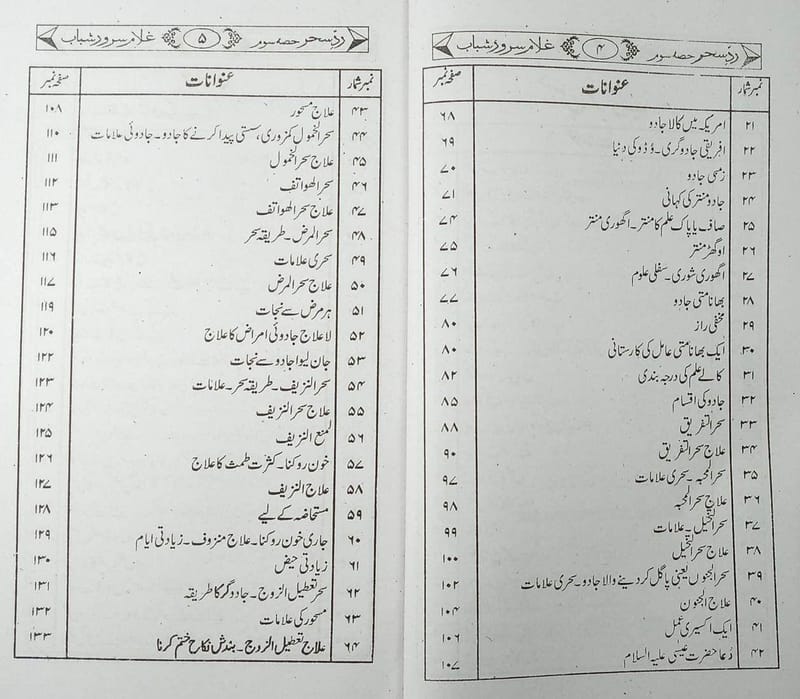 ردِّ سحر حصہ سوم ۴ غلام سرور شباب
نمبر شمار عنوانات صفحہ نمبر
۲۱ امریکہ میں کالا جادو ۶۸
۲۲ افریقی جادوگری۔ وُڈو کی دنیا ۶۹
۲۳ زمسی جادو ۷۰
۲۴ جادو منتر کی کہانی ۷۱
۲۵ صاف یا پاک علم کا منتر۔ اگھوری منتر ۷۴
۲۶ اوگھڑ منتر ۷۵
۲۷ اگھوری شوری۔ سفلی علوم ۷۶
۲۸ بھانا متی جادو ۷۷
۲۹ مخفی راز ۸۰
۳۰ ایک بھانا متی عامل کی کارستانی ۸۰
۳۱ کالے علم کی درجہ بندی ۸۲
۳۲ جادو کی اقسام ۸۵
۳۳ سحر التفریق ۸۸
۳۴ علاج سحر التفریق ۹۰
۳۵ سحر المحبہ۔ سحری علامات ۹۷
۳۶ علاج سحر المحبہ ۹۸
۳۷ سحر التخیل۔ علامات ۹۹
۳۸ علاج سحر التخیل ۱۰۰
۳۹ سحر الجنوں یعنی پاگل کر دینے والا جادو۔ سحری علامات ۱۰۲
۴۰ علاج الجنون ۱۰۴
۴۱ ایک اکسیری عمل ۱۰۶
۴۲ دُعا حضرت عیسیٰ علیہ السلام ۱۰۷
ردِّ سحر حصہ سوم ۵ غلام سرور شباب
نمبر شمار عنوانات صفحہ نمبر
۴۳ علاج مسحور ۱۰۸
۴۴ سحر الخمول کمزوری، سستی پیدا کرنے کا جادو۔ جادوئی علامات ۱۱۰
۴۵ علاج سحر الخمول ۱۱۱
۴۶ سحر الھواتف ۱۱۲
۴۷ علاج سحر الھواتف ۱۱۳
۴۸ سحر المرض۔ طریقہ سحر ۱۱۵
۴۹ سحری علامات ۱۱۶
۵۰ علاج سحر المرض ۱۱۷
۵۱ ہر مرض سے نجات ۱۱۹
۵۲ لاعلاج جادوئی امراض کا علاج ۱۲۰
۵۳ جان لیوا جادو سے نجات ۱۲۲
۵۴ سحر النزیف۔ طریقہ سحر۔ علامات ۱۲۳
۵۵ علاج سحر النزیف ۱۲۴
۵۶ لمنع النزیف ۱۲۵
۵۷ خون روکنا۔ کثرت طمث کا علاج ۱۲۶
۵۸ علاج النزیف ۱۲۷
۵۹ مستحاضہ کے لیے ۱۲۸
۶۰ جاری خون روکنا۔ علاج منزوف۔ زیادتی ایام ۱۲۹
۶۱ زیادتی حیض ۱۳۰
۶۲ سحر تعطیل الزوج۔ جادوگر کا طریقہ ۱۳۱
۶۳ مسحور کی علامات ۱۳۲
۶۴ علاج تعطیل الزوج۔ بندش نکاح ختم کرنا ۱۳۳